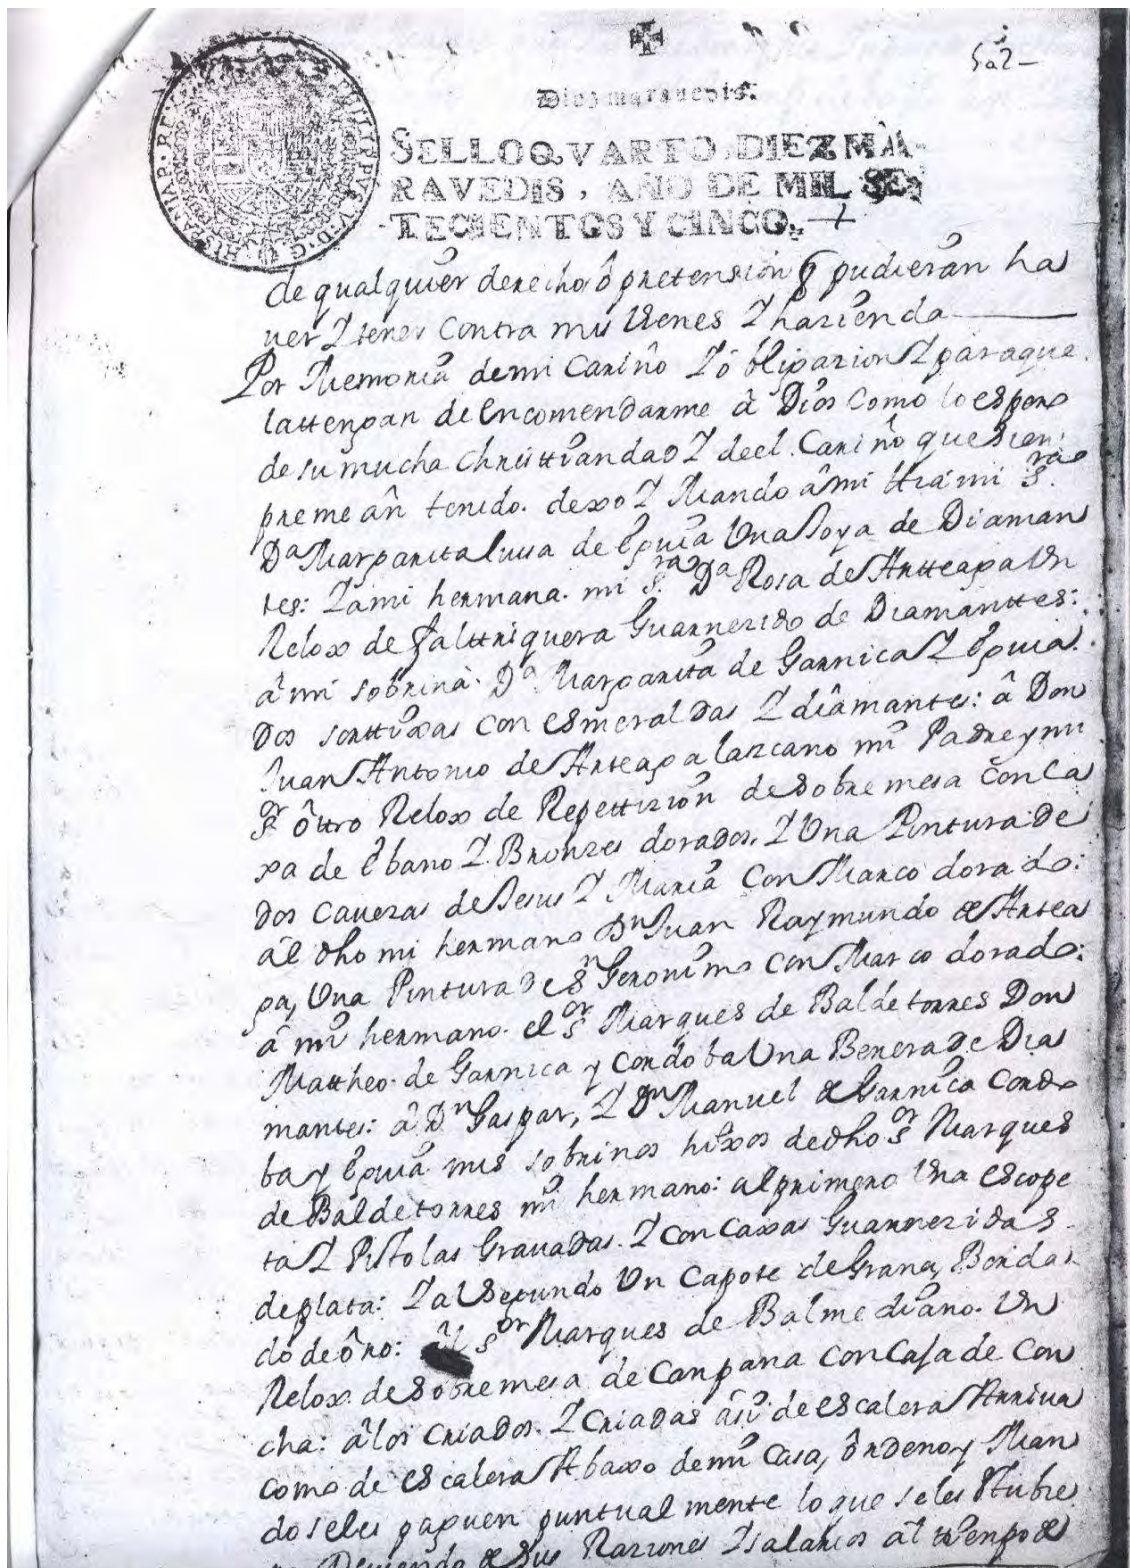 502
Diez maravedis.
SELLO QVARTO, DIEZ MA-
RAVEDIS, AÑO DE MIL SE-
TECIENTOS Y CINCO.
PHILIPPVS V D G
de qualquier derecho ô pretension q̃ pudieran ha
uer Y tener Contra mis Vienes Y hazienda
Por Memoria de mi Cariño Y ôbligazion Y para que
la ttengan de Encomendarme â Dios Como lo espero
de su mucha Christtiandad Y de el Cariño que siem
pre me ân tenido. dexo Y Mando â mi ttia mi S.ra
D.a Margarita luisa de Eguia Una Joya de Diaman
tes: Y a mi hermana mi S.ra D.a Rosa de Artteaga Un
Relox de faltriquera Guarnezido de Diamanttes:
â mi sobrina D.a Margarita de Garnica Y Eguia
Dos sorttixas con esmeraldas Y diâmantes: â Don
Juan Antonio de Arteaga lazcano mi Padre y mi
S.or ôttro Relox de Repettizion de sobre mesa con Ca
xa de êbano Y Bronzes dorados. Y Una Pintura de
dos Caueras de Jesus Y Maria Con Marco dorado:
âl dho mi hermano D.n Juan Raymundo de Artea
ga, Una Pintura de S.n Geronimo con Marco dorado:
â mi hermano el S.or Marques de Baldetorres Don
Mattheo de Garnica y Cordoba Una Benera de Dia
mantes: â D.n Gaspar, Y D.n Manuel de Garnica Cordo
ba y Eguia mis sobrinos hixos de dho S.or Marques
de Baldetorres mi hermano: al primero Una escope
ta Y Pistolas Grauadas. Y con Caxas Guarnezidas
de plata: Y al Segundo Un Capote de Grana, Borda
do de ôro: âl S.or Marques de Balmediano. Un
Relox de sobre mesa de Campana con Caja de Con
cha: â los Criados. Y Criadas âsi de escalera Arriua
Como de escalera Abaxo de mi Casa, ôrdeno y Man
do seles paguen puntual mente lo que seles Vbre
Deuiendo de sus Raziones Y salarios âl tiempo de